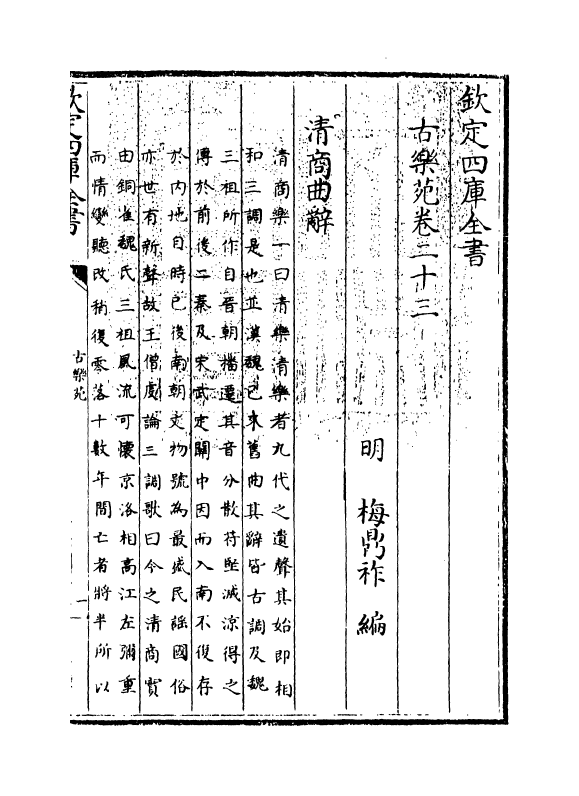 欽定四庫全書
古樂苑卷二十三
明 梅鼎祚 編
清商曲辭
清商樂一曰清樂清樂者九代之遺聲其始即相
和三調是也並漢魏已來舊曲其辭皆古調及魏
三祖所作自晉朝播遷其音分散苻堅滅涼得之
傳於前後二秦及宋武定關中因而入南不復存
於内地自時已後南朝文物號為最盛民謡國俗
亦世有新聲故王僧䖍論三調歌曰今之清商實
由銅雀魏氏三祖風流可懷京洛相高江左彌重
而情變聽改稍復零落十數年間亡者將半所以
欽定四庫全書
古樂苑
一